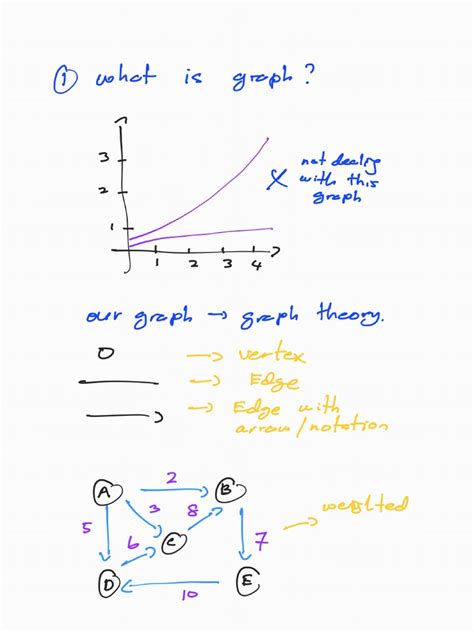 ① what is graph?
3
2
1
1 2 3 4
X not dealing
with this
graph
our graph → graph theory.
O → vertex
→ Edge
→ Edge with
arrow/notation
A 2 B
5 3 8
6 C 7 → weighted
D 10 E